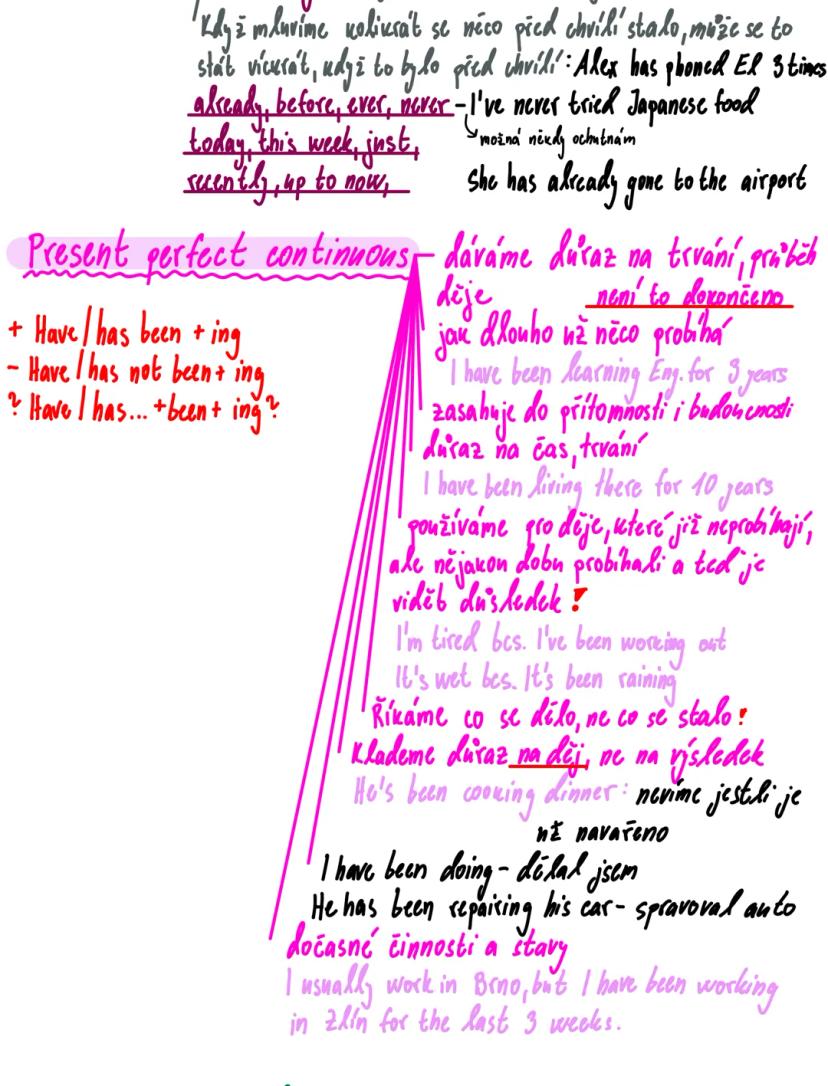 Když mluvíme kolikrát se něco před chvílí stalo, může se to
stát víckrát, když to bylo před chvílí: Alex has phoned El 3 times
already, before, ever, never - I've never tried Japanese food
today, this week, just,
možná někdy ochutnám
recently, up to now,
She has already gone to the airport
Present perfect continuous
dáváme důraz na trvání, průběh
děje není to dokončeno
+ Have/has been + ing
- Have/has not been + ing
? Have/has... + been + ing?
jak dlouho už něco probíhá
I have been learning Eng. for 3 years
zasahuje do přítomnosti i budoucnosti
důraz na čas, trvání
I have been living there for 10 years
používáme pro děje, které již neprobíhají,
ale nějakou dobu probíhali a teď je
vidět důsledek !
I'm tired bcs. I've been working out
It's wet bcs. It's been raining
Říkáme co se dělo, ne co se stalo !
Klademe důraz na děj, ne na výsledek
He's been cooking dinner: nevíme jestli je
už navařeno
I have been doing - dělal jsem
He has been repairing his car - spravoval auto
dočasné činnosti a stavy
I usually work in Brno, but I have been working
in Zlín for the last 3 weeks.